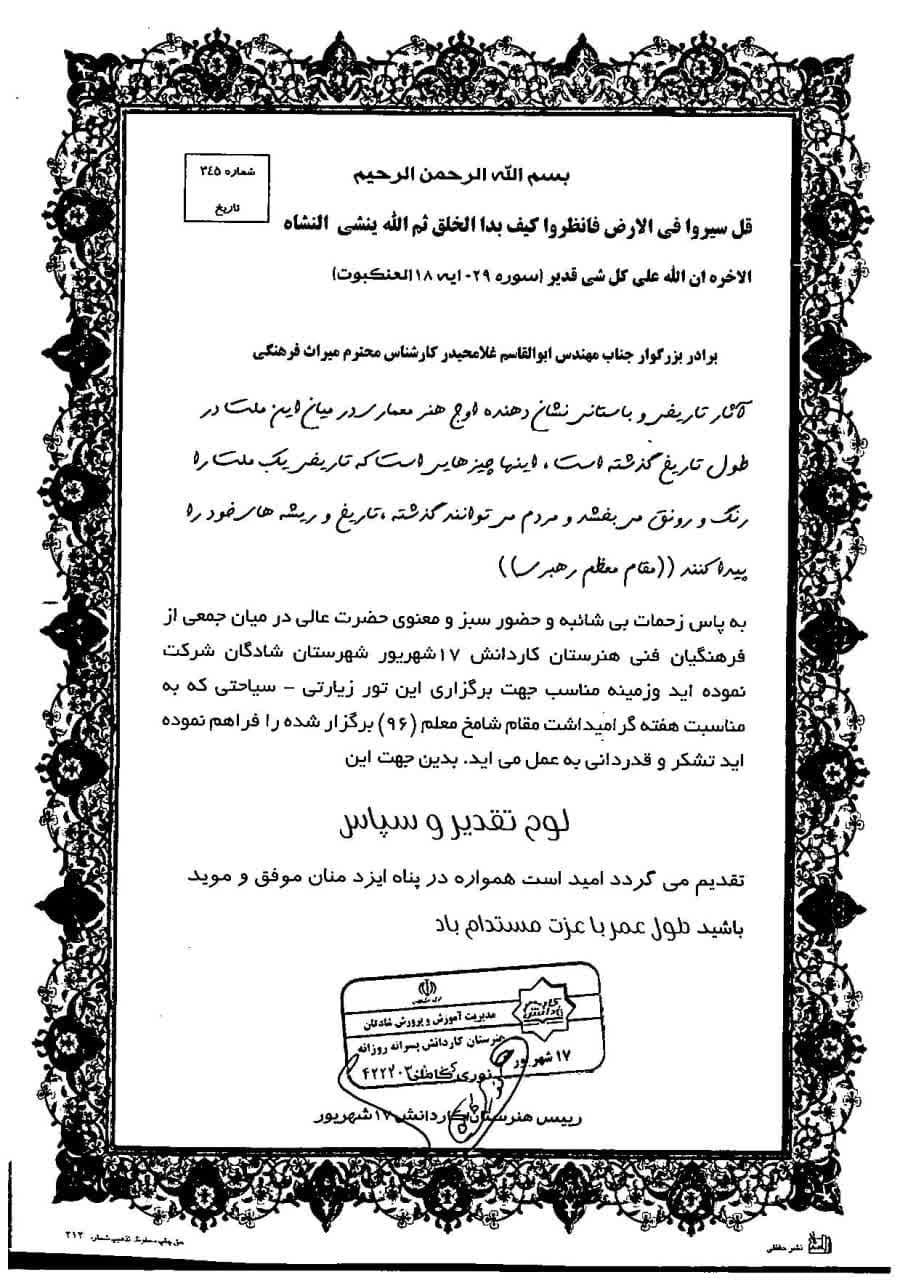 بسم الله الرحمن الرحیم
شماره ۳۴۵
تاریخ
قل سیروا فی الارض فانظروا کیف بدا الخلق ثم الله ینشی النشاه
الاخره ان الله علی کل شی قدیر (سوره ۲۹- ایه ۱۸العنکبوت)
برادر بزرگوار جناب مهندس ابوالقاسم غلامحیدر کارشناس محترم میراث فرهنگی
آثار تاریخی و باستانی نشان دهنده اوج هنر معماری در میان این ملت در
طول تاریخ گذشته است ، اینها چیزهایی است که تاریخی یک ملت را
رنگ و رونق می بخشد و مردم می توانند گذشته ، تاریخ و ریشه های خود را
پیدا کنند ((مقام معظم رهبری))
به پاس زحمات بی شائبه و حضور سبز و معنوی حضرت عالی در میان جمعی از
فرهنگیان فنی هنرستان کاردانش ۱۷شهریور شهرستان شادگان شرکت
نموده اید وزمینه مناسب جهت برگزاری این تور زیارتی – سیاحتی که به
مناسبت هفته گرامیداشت مقام شامخ معلم (۹۶) برگزار شده را فراهم نموده
اید تشکر و قدردانی به عمل می اید. بدین جهت این
لوح تقدیر و سپاس
تقدیم می گردد امید است همواره در پناه ایزد منان موفق و موید
باشید طول عمر با عزت مستدام باد
کاردانش
مدیریت آموزش و پرورش شادگان
هنرستان کاردانش پسرانه روزانه
۱۷ شهریور
نوری
رییس هنرستان کاردانش ۱۷شهریور
نشر حفظی
حق چاپ محفوظ تذهیب شماره ۲۱۲